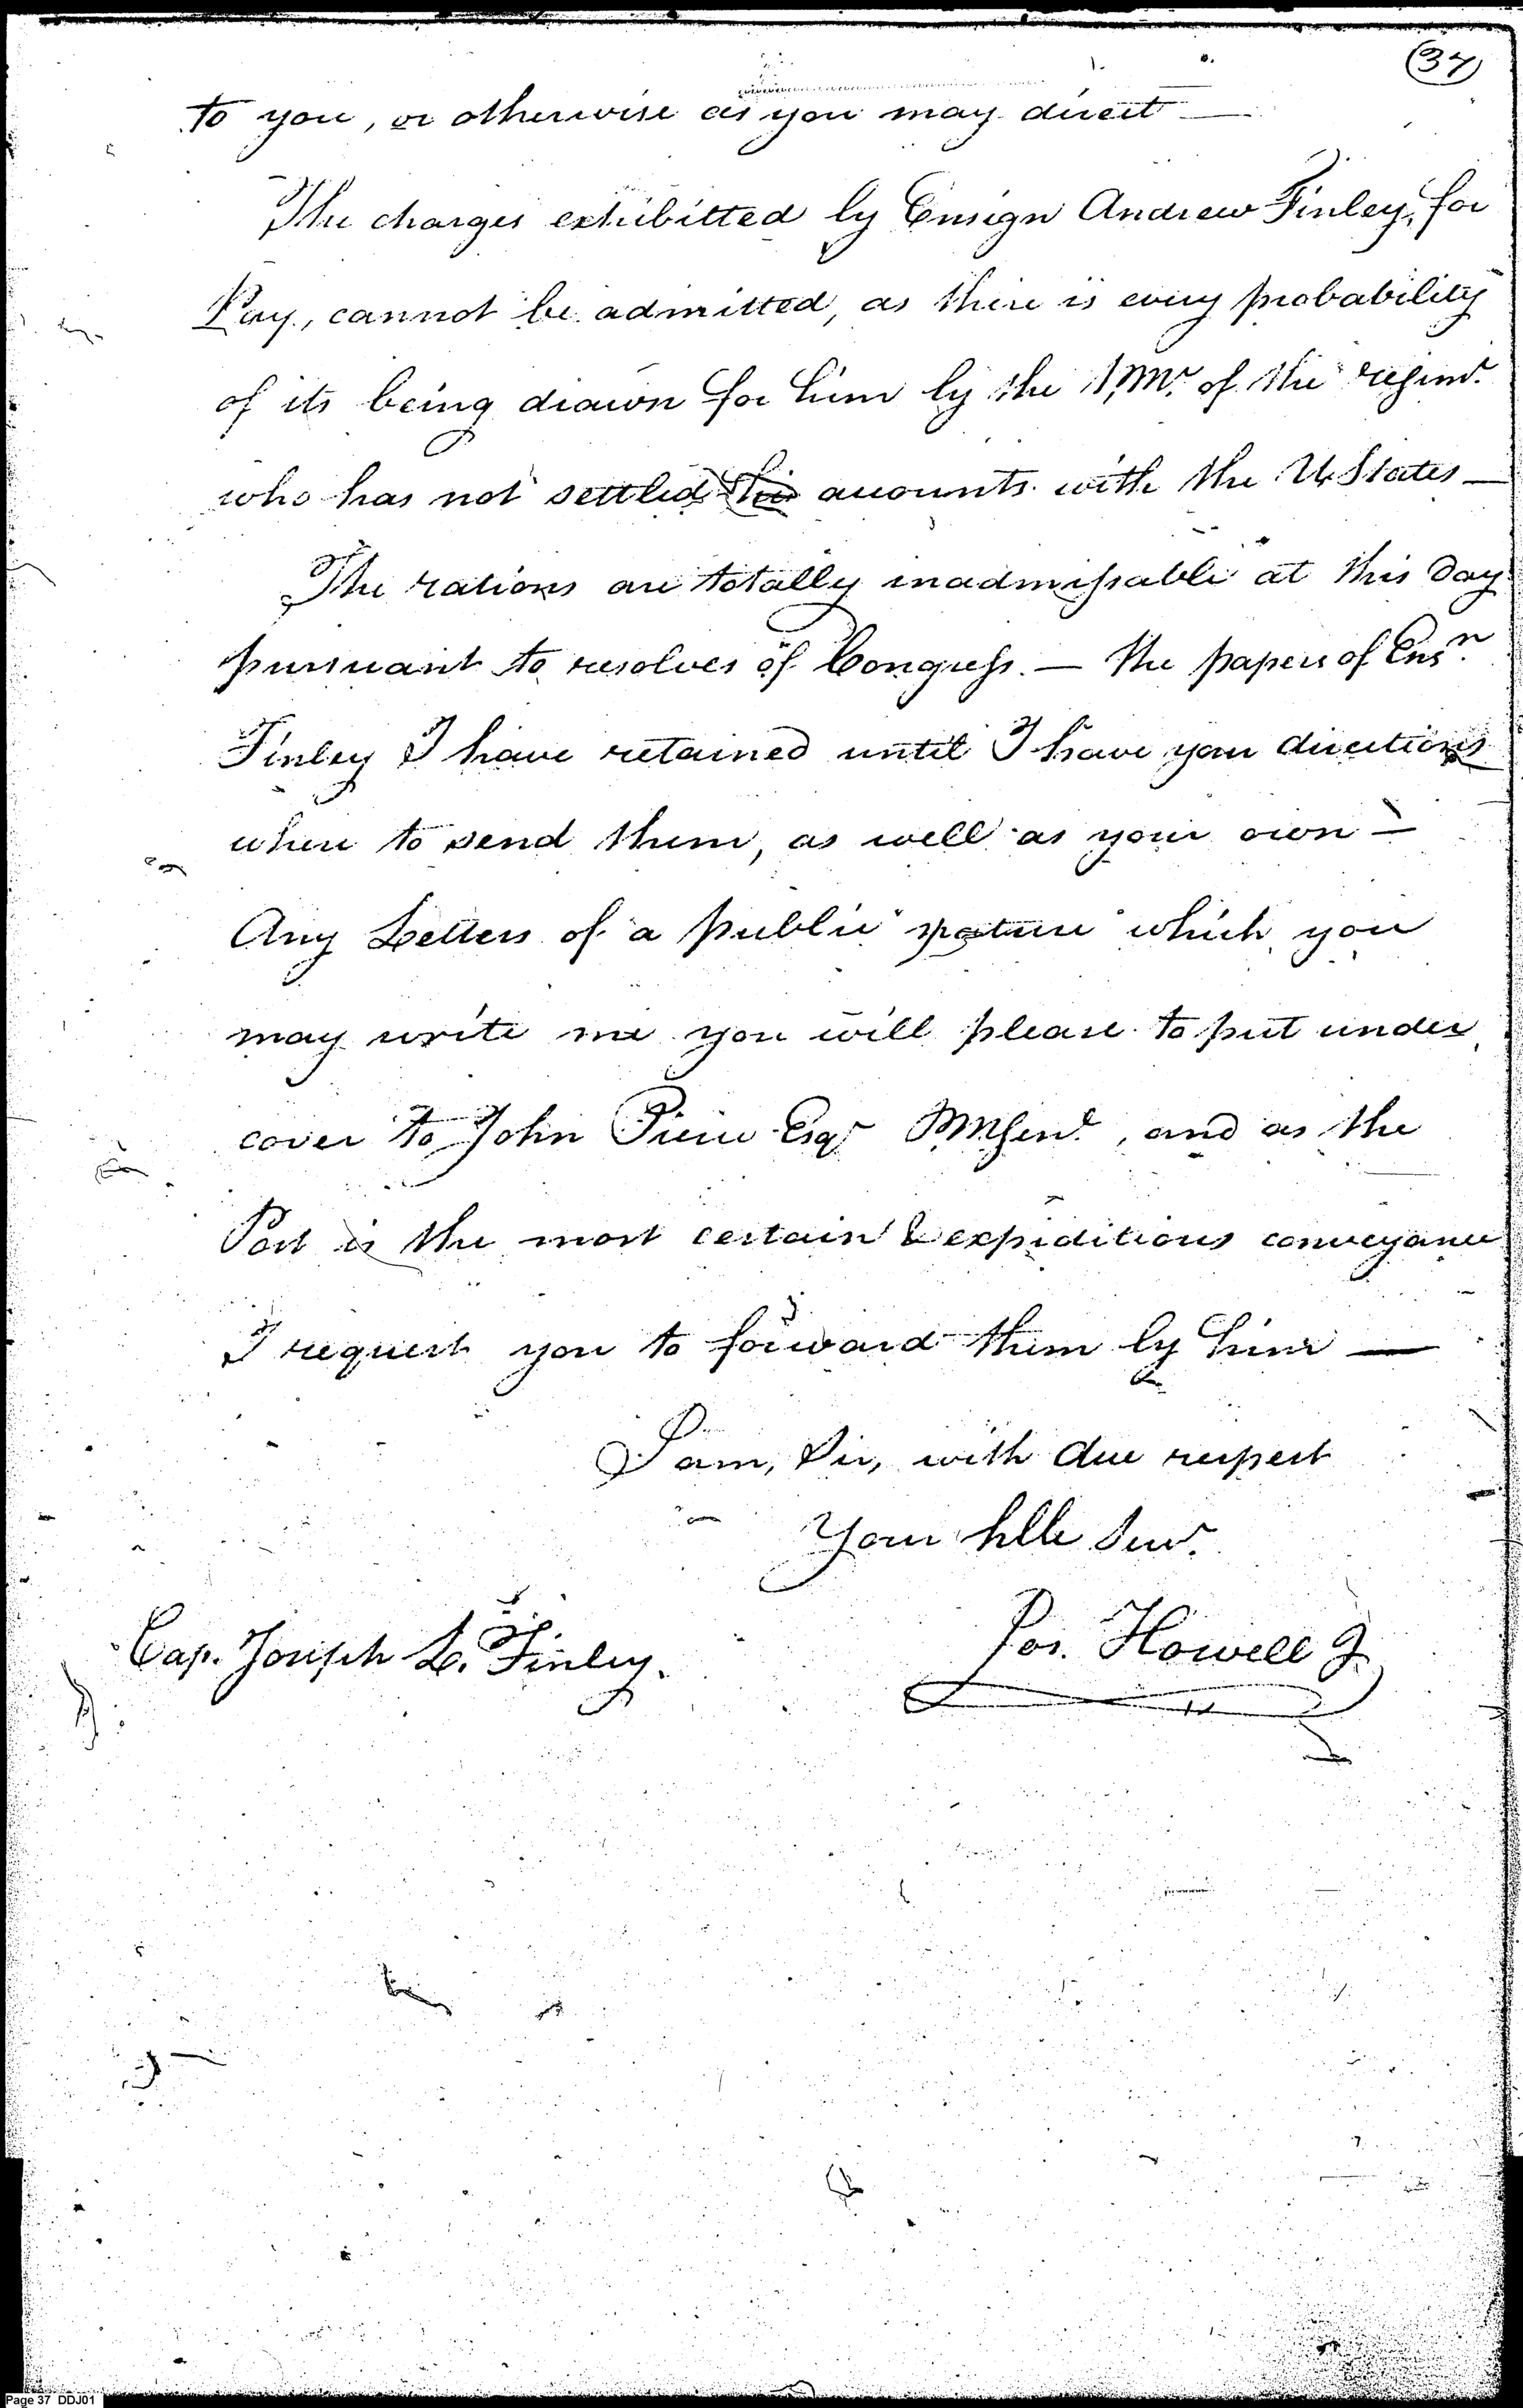 (37)
to you, or otherwise as you may direct —
The charges exhibitted by Ensign Andrew Finley, for
Pay, cannot be admitted, as there is every probability
of its being drawn for him by the P.Mr. of the regimt.
who has not settled his accounts with the U States —
The rations are totally inadmissable at this day
pursuant to resolves of Congress. — the papers of Ensn.
Finley I have retained until I have your directions
where to send them, as well as your own —
Any Letters of a public nature which you
may write me you will please to put under
cover to John Pierce Esqr PMGenl., and as the
Post is the most certain & expiditious conveyance
I request you to forward them by him —
I am, Sir, with due respect
Your hble Servt.
Jos. Howell J
Cap. Joseph L. Finley.
Page 37 DDJ01